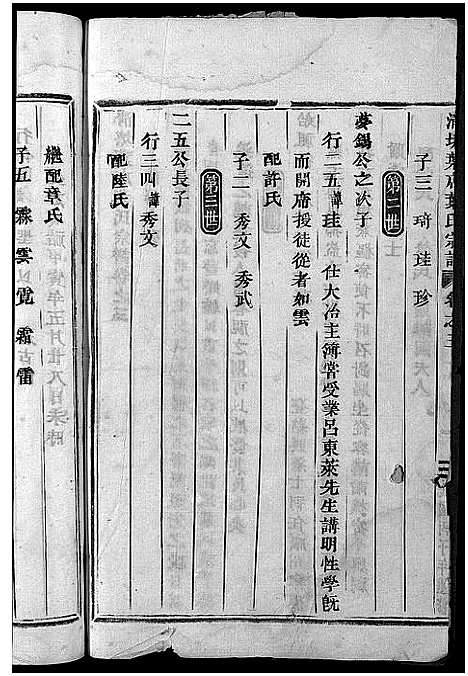 子三 琦 珪 珍
第二世
夢錫公之次子
行二五 諱珪 仕大冶主簿嘗受業呂東萊先生講明性學既
而開齋授徒從者如雲
配許氏
子二 秀文 秀武
第三世
二五公長子
行三四 諱秀文
配陸氏
繼配章氏
子五 霖 雲 霓 霜 雷